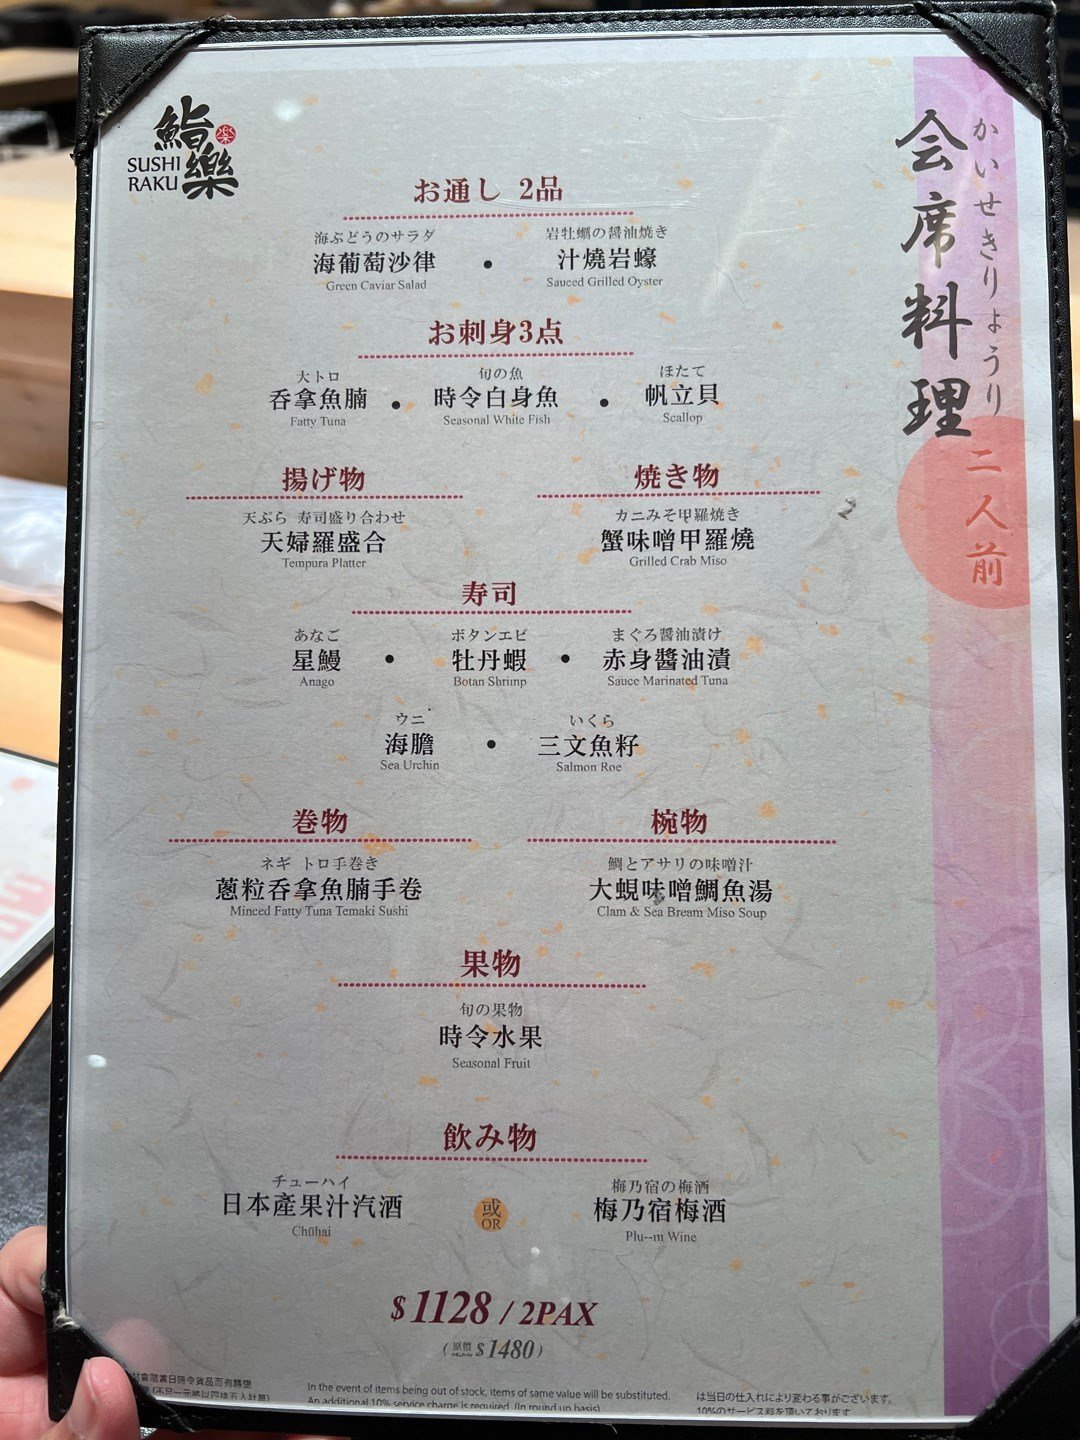 鮨樂
楽
SUSHI
RAKU
会席料理
かいせきりょうり
二人前
お通し 2品
海ぶどうのサラダ
海葡萄沙律
Green Caviar Salad
岩牡蠣の醤油焼き
汁燒岩蠔
Sauced Grilled Oyster
お刺身3点
大トロ
吞拿魚腩
Fatty Tuna
旬の魚
時令白身魚
Seasonal White Fish
ほたて
帆立貝
Scallop
揚げ物
天ぷら 寿司盛り合わせ
天婦羅盛合
Tempura Platter
焼き物
カニみそ甲羅焼き
蟹味噌甲羅燒
Grilled Crab Miso
寿司
あなご
星鰻
Anago
ボタンエビ
牡丹蝦
Botan Shrimp
まぐろ醤油漬け
赤身醬油漬
Sauce Marinated Tuna
ウニ
海膽
Sea Urchin
いくら
三文魚籽
Salmon Roe
巻物
ネギ トロ手巻き
蔥粒吞拿魚腩手卷
Minced Fatty Tuna Temaki Sushi
椀物
鯛とアサリの味噌汁
大蜆味噌鯛魚湯
Clam & Sea Bream Miso Soup
果物
旬の果物
時令水果
Seasonal Fruit
飲み物
チューハイ
日本產果汁汽酒
Chūhai
或
OR
梅乃宿の梅酒
梅乃宿梅酒
Plu--m Wine
$1128 / 2PAX
(原價 $1480)
會隨當日時令貨品而有轉變
(不足一元將以四捨五入計算)
In the event of items being out of stock, items of same value will be substituted.
An additional 10% service charge is required. (In round up basis)
は当日の仕入れにより変わる事がございます。
10%のサービス料を頂いております